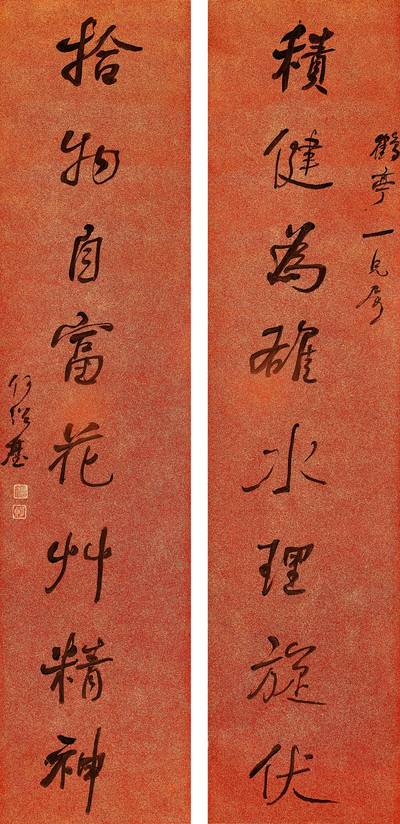 鶴亭一兄属
積健為雄水理旋伏
拾物自富花艸精神
何紹基